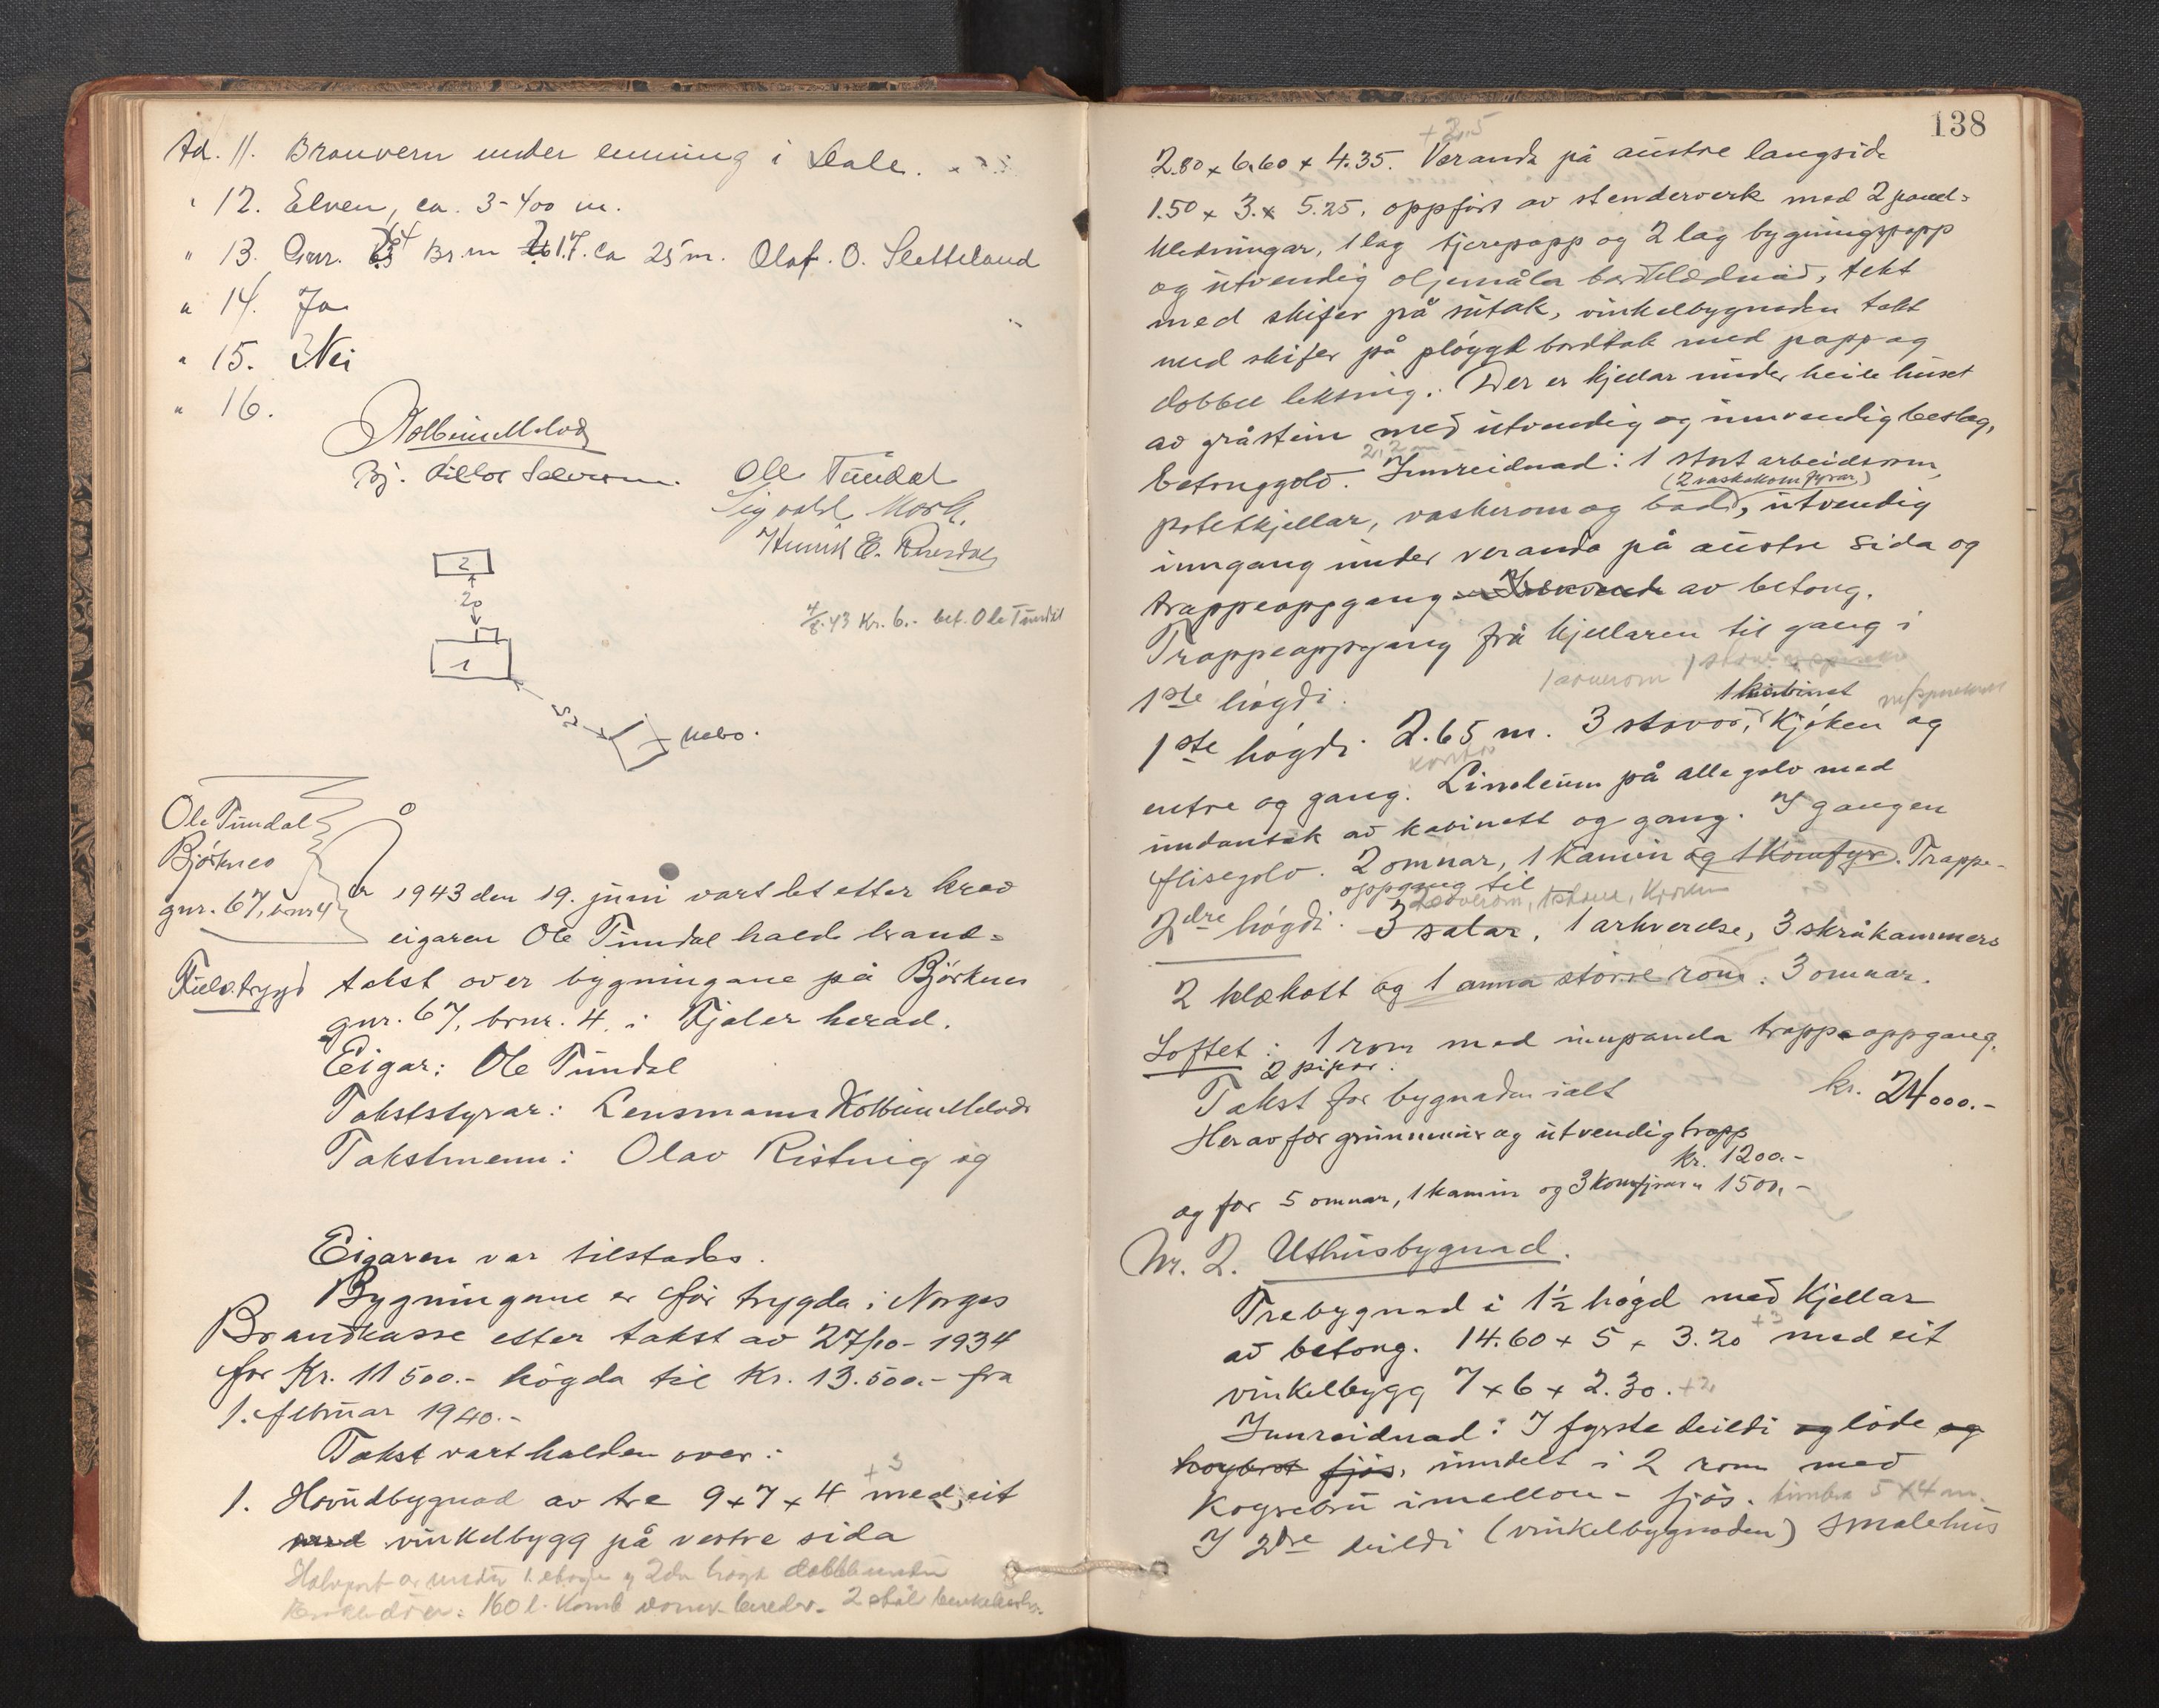 Ad. 11. Branvern under emning i Dale.
" 12. Elven, ca. 3-400 m.
" 13. Gnr. 64 Br.nr 17. ca 25 m. Olaf. O. Sletteland
" 14. Ja
" 15. Nei
" 16.
Kolbein Melvær
Ole Tundal
Sigvald Mork.
Henrik E.
2
20
1
52
Nabo.
4/8-43 Kr. 6.- bet. Ole Tundal
Ole Tundal
Björknes
gnr. 67, bnr 4
År 1943 den 19. juni vart det etter krav
eigaren Ole Tundal halde brand-
takst over bygningane på Björknes
gnr. 67, brnr. 4. i Fjaler herad.
Eigar: Ole Tundal
Takststyrar: Lensmann Kolbein Melvær
Takstmenn: Olav Ristnig og
Eigaren var tilstades.
Bygningane er før trygda i Norges
Brandkasse etter takst av 27/10-1934
for Kr. 11500.- högda til Kr. 13.500.- fra
1. februar 1940.-
Takst vart halden over:
+3
1. Hovudbygnad av tre 9 x 7 x 4 med eit
med vinkelbygg på vestre sida
1. etasje og 2dre høgd
160 l. Komb 2 stål
138
+2.5
2.80 x 6.60 x 4.35. Veranda på austre langside
1.50 x 3. x 5.25, oppført av stenderverk med 2 panel-
kledningar, 1 lag tjerepapp og 2 lag bygningspapp
og utvendig oljemåla bordklædnad, tekt
med skifer på sutak, vinkelbygnaden tekt
med skifer på pløygt bordtak med papp og
dobbel lekting. Der er kjellar under heile huset
av gråstein med utvendig og innvendig beslag,
2,2 m
betonggolv. Innreidnad: 1 stort arbeidsrom,
(2 vaskekomfyrar)
potetkjellar, vaskerom og bad, utvendig
inngang under veranda på austre sida og
trappeoppgang av betong.
Trappeoppgang frå kjellaren til gang i
1ste högdi.
1 soverom
1 kabinet
1ste högdi 2.65 m. 3 stovor, kjøken og
kontor
entre og gang. Linoleum på alle golv med
undantak av kabinett og gang. I gangen
flisegolv. 2 omnar, 1 kamin og 1 komfyr. Trappe-
oppgang til
soverom, 1 stove, kjøken
2dre högdi. 3 salar, 1 arkverelse, 3 skråkammers
2 klækott og 1 anna större rom. 3 omnar.
Loftet: 1 rom med innpanda trappeoppgang.
2 pipor.
Takst for bygnaden ialt kr. 24000.-
Herav for grunnmur og utvendig trapp
kr. 1200.-
og for 5 omnar, 1 kamin og 3 komfyrar " 1500.-
Nr. 2. Uthusbygnad.
Trebygnad i 1½ högd med kjellar
+3
av betong. 14.60 x 5 x 3.20 med eit
vinkelbygg 7 x 6 x 2.30. +2
Innreidnad: I fyrste deildi og löde og
fjös, inndelt i 2 rom med
köyrebru imellom - fjös. timbra 5 x 4 m.
I 2dre deildi (vinkelbygnaden) smalehus